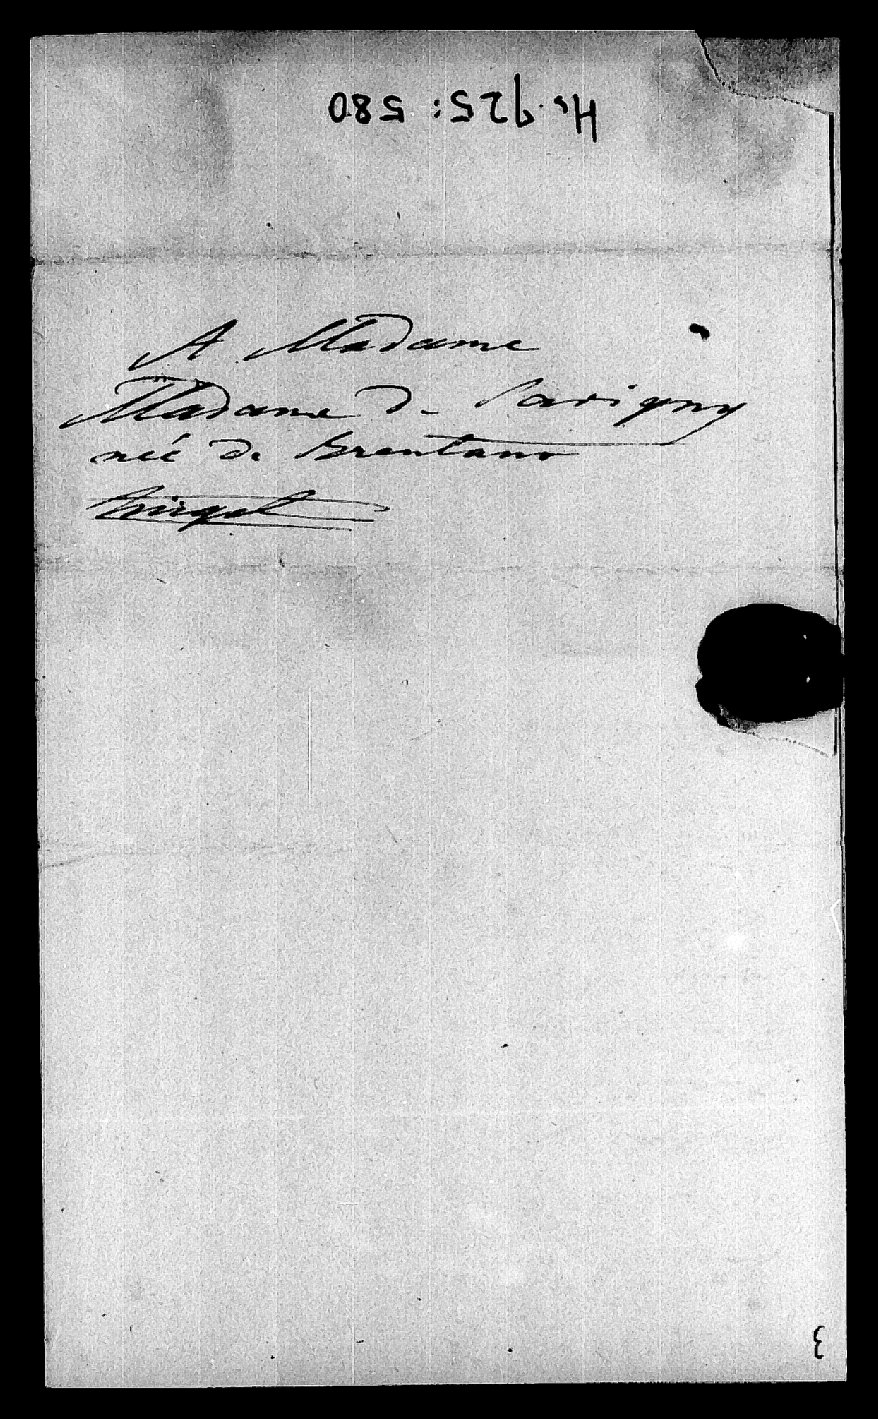 Hs. 925: 580
A Madame
Madame de Savigny
neé de Brentano
3